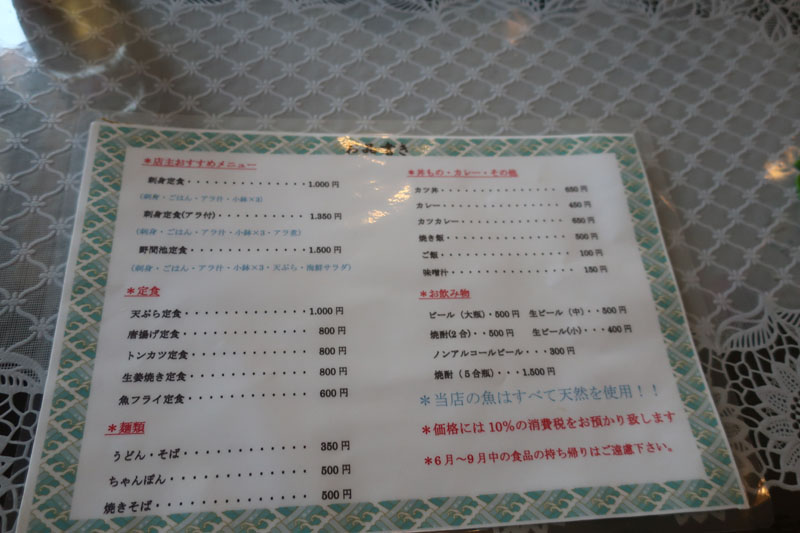 おしながき
＊店主おすすめメニュー
刺身定食・・・・・・・・・・・・・・1.000円
（刺身・ごはん・アラ汁・小鉢×2）
刺身定食(アラ付)・・・・・・・・・・・1.350円
（刺身・ごはん・アラ汁・小鉢×3・アラ煮）
野間池定食・・・・・・・・・・・・・1.500円
（刺身・ごはん・アラ汁・小鉢×3・天ぷら・海鮮サラダ）
＊定食
天ぷら定食・・・・・・・・・・・1.000円
唐揚げ定食・・・・・・・・・・・800円
トンカツ定食・・・・・・・・・・800円
生姜焼き定食・・・・・・・・・・800円
魚フライ定食・・・・・・・・・・600円
＊麺類
うどん・そば・・・・・・・・・・・350円
ちゃんぽん・・・・・・・・・・・・500円
焼きそば・・・・・・・・・・・・・500円
＊丼もの・カレー・その他
カツ丼・・・・・・・・・・・・・・・650円
カレー・・・・・・・・・・・・・・・450円
カツカレー・・・・・・・・・・・・・650円
焼き飯・・・・・・・・・・・・・・・500円
ご飯・・・・・・・・・・・・・・・・100円
味噌汁・・・・・・・・・・・・・・・150円
＊お飲み物
ビール（大瓶）・500円 生ビール（中）・・500円
焼酎(2合)・・500円 生ビール(小)・・・400円
ノンアルコールビール・・・300円
焼酎（5合瓶）・・・1.500円
＊当店の魚はすべて天然を使用！！
＊価格には10%の消費税をお預かり致します
＊6月～9月中の食品の持ち帰りはご遠慮下さい。